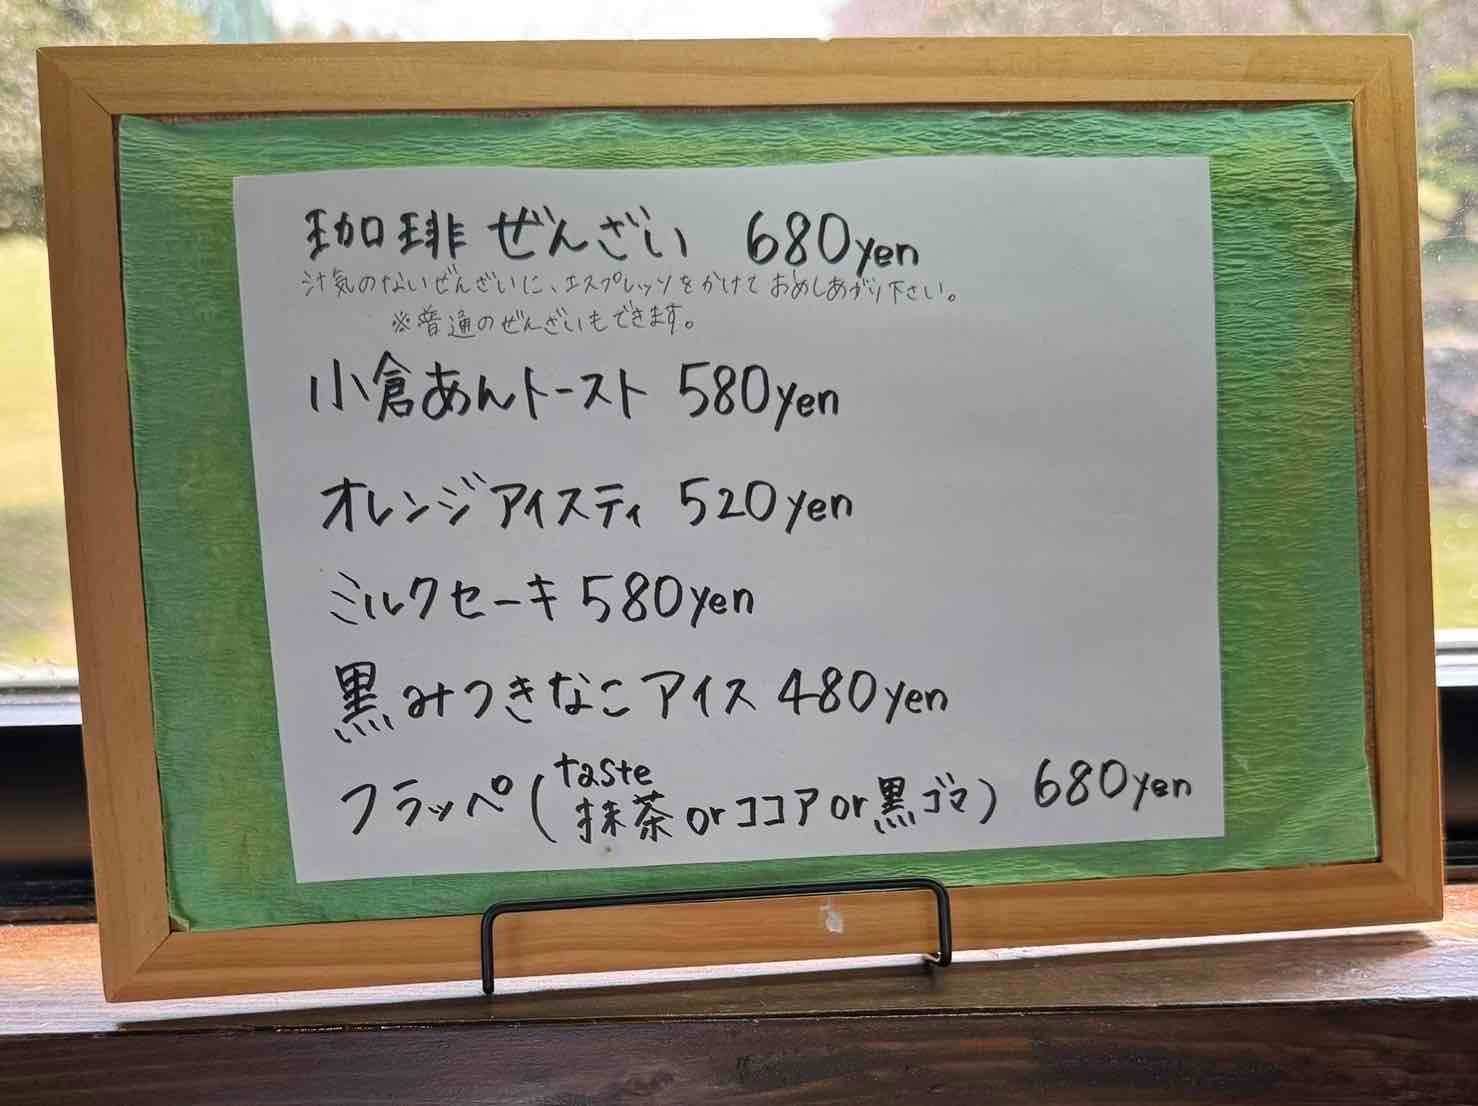 珈琲ぜんざい 680yen
汁気のないぜんざいに、エスプレッソをかけておめしあがり下さい。
※普通のぜんざいもできます。
小倉あんトースト 580yen
オレンジアイスティ 520yen
ミルクセーキ 580yen
黒みつきなこアイス 480yen
フラッペ(taste 抹茶 or ココア or 黒ゴマ) 680yen